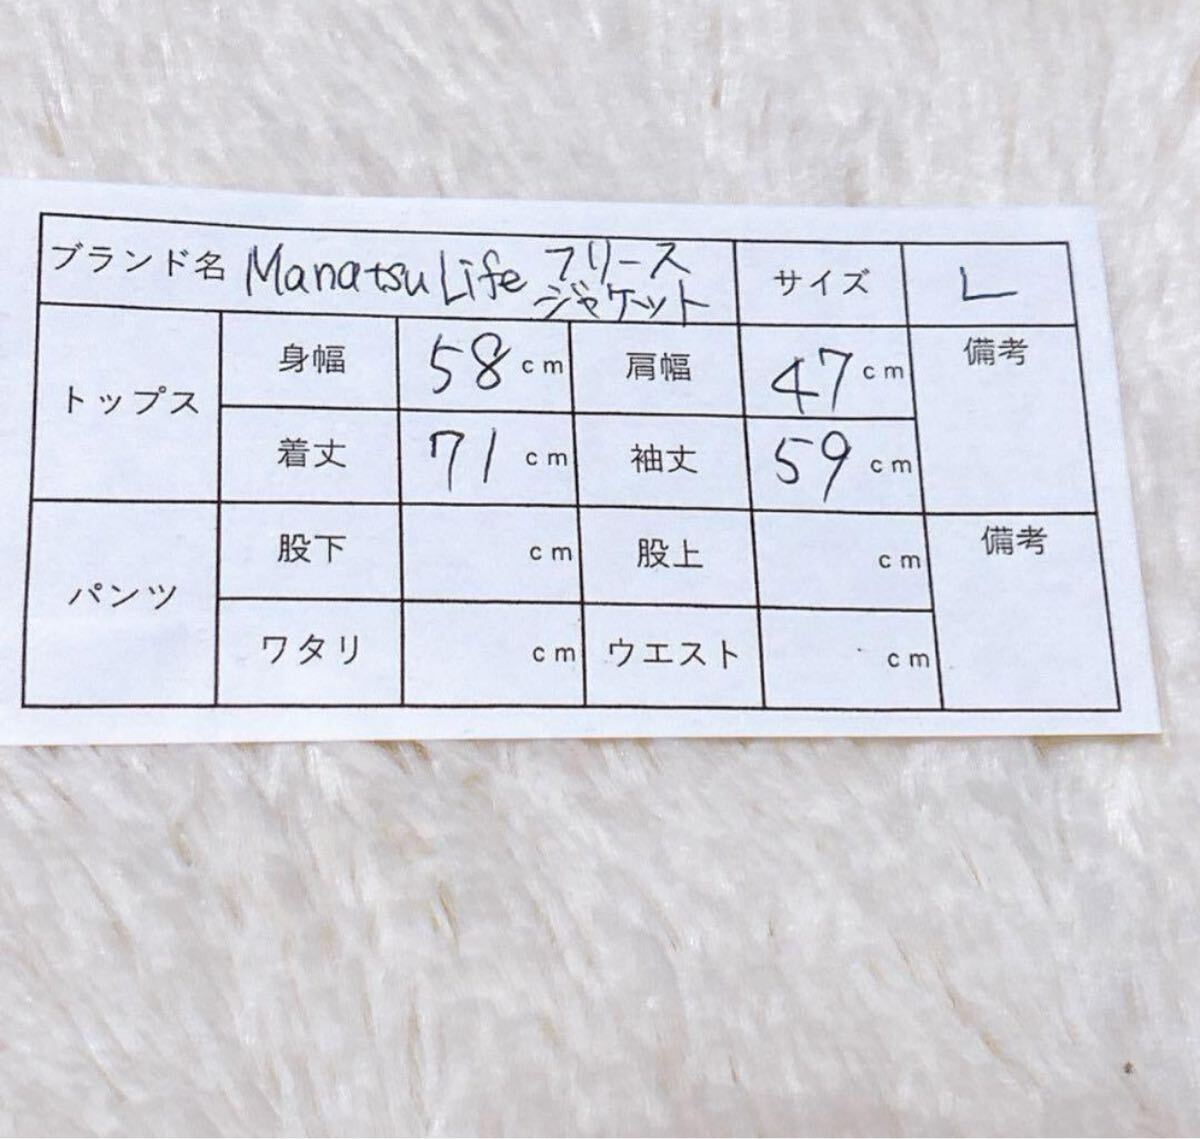 ブランド名 Manatsu Life フリース ジャケット サイズ L
トップス 身幅 58 cm 肩幅 47 cm 備考
着丈 71 cm 袖丈 59 cm
パンツ 股下 cm 股上 cm 備考
ワタリ cm ウエスト cm